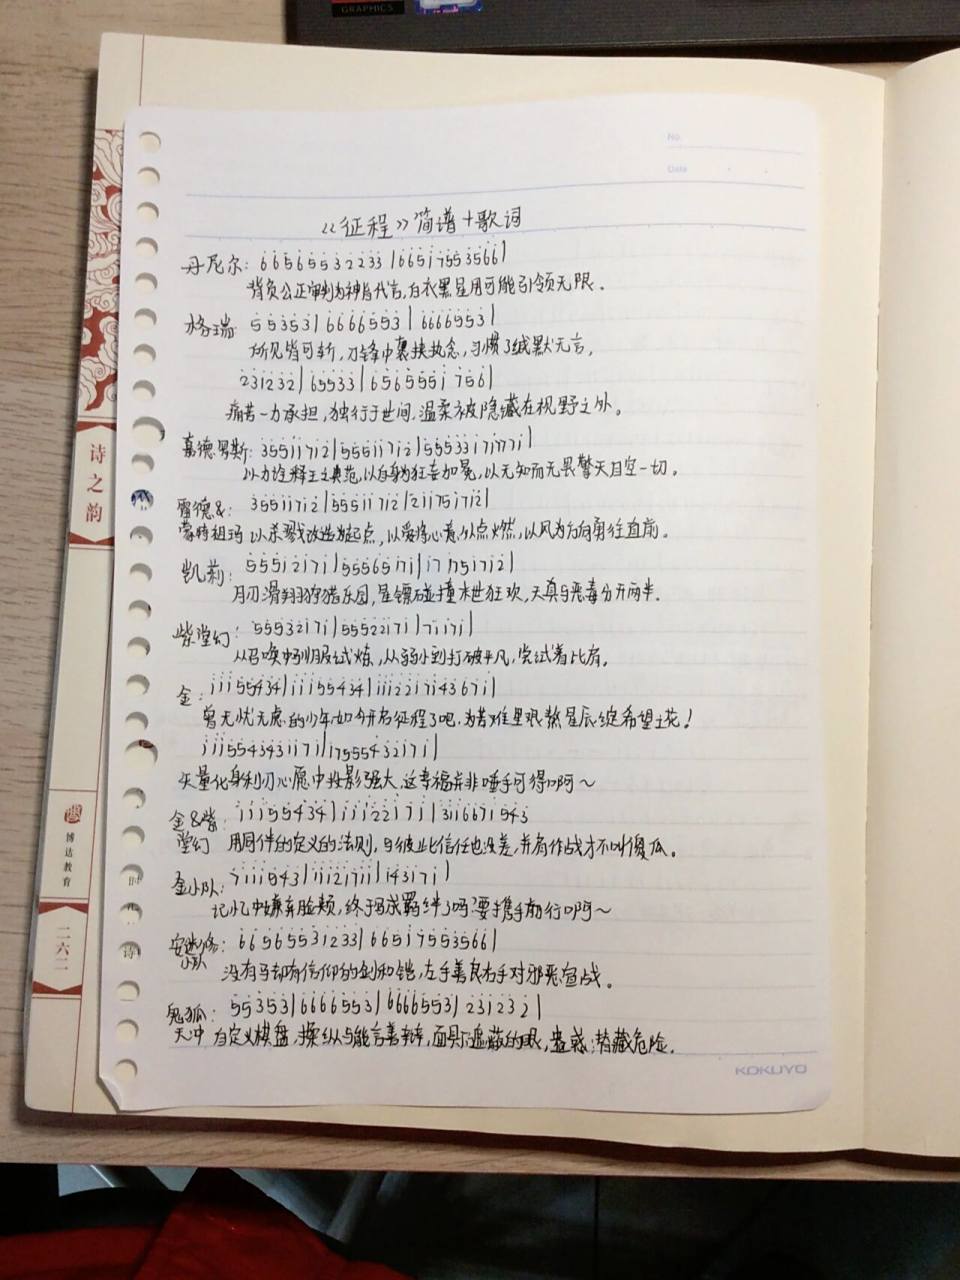 GRAPHICS
No.
Date
《征程》简谱+歌词
丹尼尔: 6656553223 3|66517553566|
背负公正审判为神后代言,白衣黑星用可能引领无限。
格瑞: 55353|6666553|6666553|
所见皆可斩,刀锋中裹挟执念,习惯了缄默无言,
231232|65533|6565551756|
痛苦一力承担,独行于世间,温柔被隐藏在视野之外。
嘉德罗斯: 35511712|55511712|
以力诠释王之典范,以自身为狂妄加冕,以无知而无畏擎天目空一切。
雷德&: 35511712|55511712|211751712|
蒙特祖玛 以杀戮改造为起点,以爱将心意从点燃,以风为方向勇往直前。
凯莉: 55512171|
月刃滑翔狩猎乐园,星镖碰撞末世狂欢,天真与恶毒分开两半。
紫堂幻: 55532171|55522171|71171|
从召唤中到归服试炼,从弱小到打破平凡,尝试着比肩。
金: 11155434|11155434|
曾无忧无虑的少年如今开启征程了吧,为苦难里艰熬星辰绽希望之花!
矢量化身利刃心愿中投影强大,这幸福并非唾手可得啊~
金&紫: 11155434|
堂幻 用同伴的定义的法则,与彼此信任也没差,并肩作战才不叫傻瓜。
金小队: 7111543|
记忆中嫌弃脸颊,终于写成羁绊了吗?要携手前行啊~
安迷修: 6656553123 3|66517553566|
小队 没有马却有信仰的剑和铠,左手善良右手对邪恶宣战。
鬼狐: 55353|6666553|6666553|231232|
天冲 自定义棋盘,操纵与能言善辩,面具下遮蔽的眼,蛊惑潜藏危险.
KOKUYO
诗之韵
博达教育
二六二